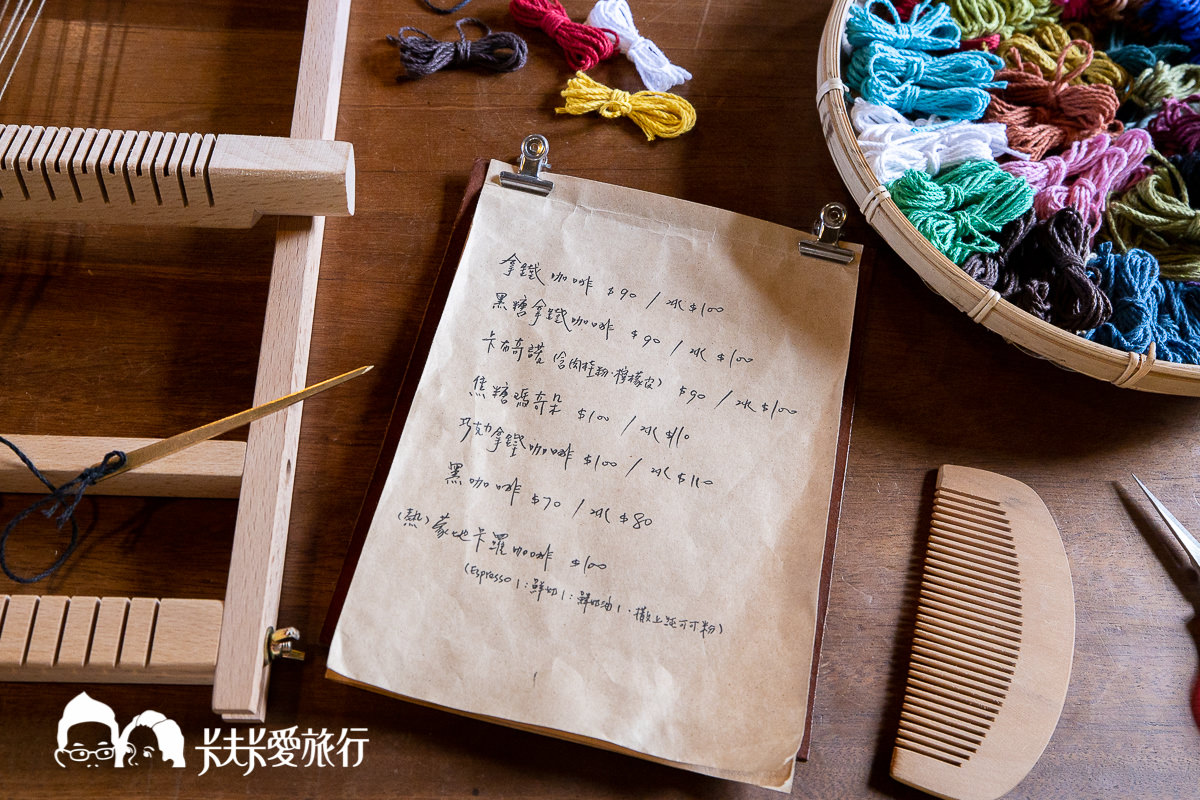 拿鐵咖啡 $90 / 冰 $100
黑糖拿鐵咖啡 $90 / 冰 $100
卡布奇諾 (含肉桂粉.檸檬皮) $90 / 冰 $100
焦糖瑪奇朵 $100 / 冰 $110
巧克力拿鐵咖啡 $100 / 冰 $110
黑咖啡 $70 / 冰 $80
(熱) 蒙地卡羅咖啡 $100
(Espresso 1 : 鮮奶 1 : 鮮奶油 1 . 撒上純可可粉)
卡夫卡愛旅行